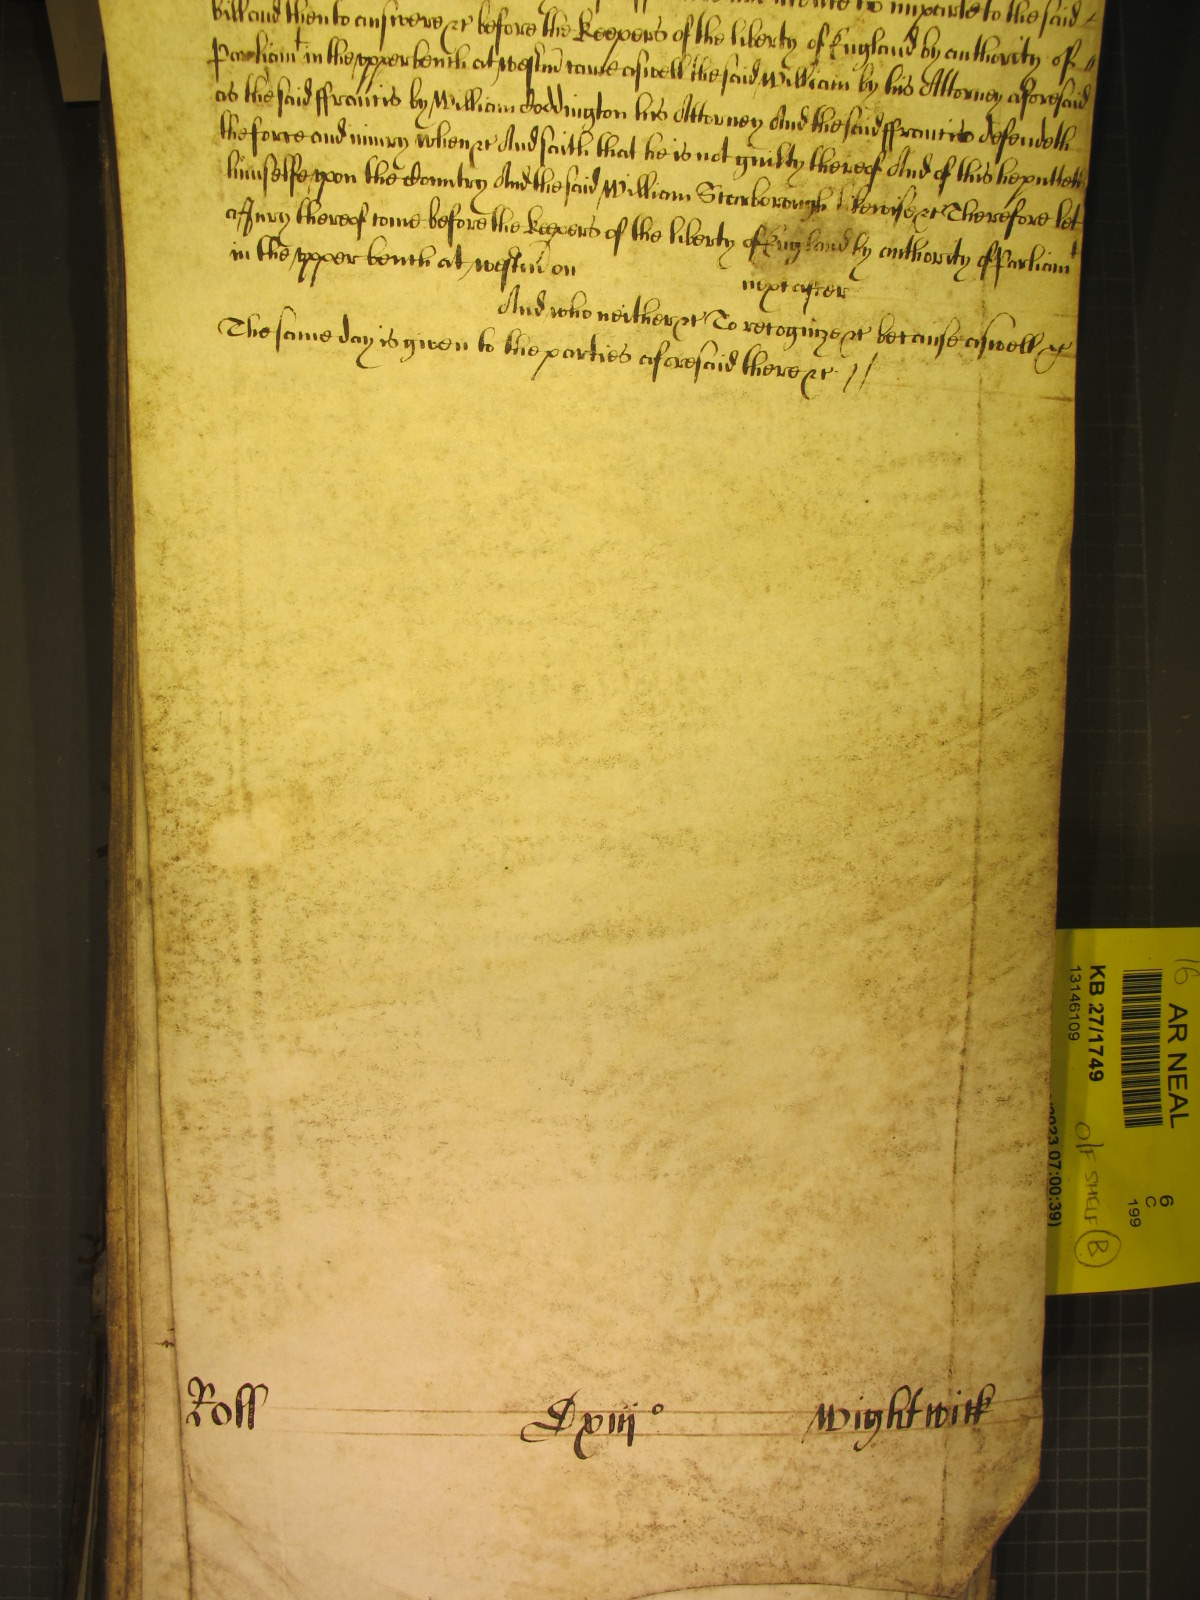 to imparle to the said
bill and then to answere &c before the Keepers of the liberty of England by authority of
Parliamt in the upper bench at Westm̄ came aswell the said William by his Attorney aforesaid
as the said ffrancis by William Doddington his Attorney And the said ffrancis defendeth
the force and iniury when &c And saith that he is not guilty thereof And of this he putteth
himselfe upon the Country And the said William Scarborough likewise &c Therefore let
a Jury thereof come before the Keepers of the liberty of England by authority of Parliamt
in the upper bench at Westm̄ on next after
And who neither &c To recognize &c because aswell &c
The same day is given to the parties aforesaid there &c //
Roll Cxiijº Wightwick
16 AR NEAL
KB 27/1749
13146109
6
C
199
2023 07:00:39)
O/F SHELF B